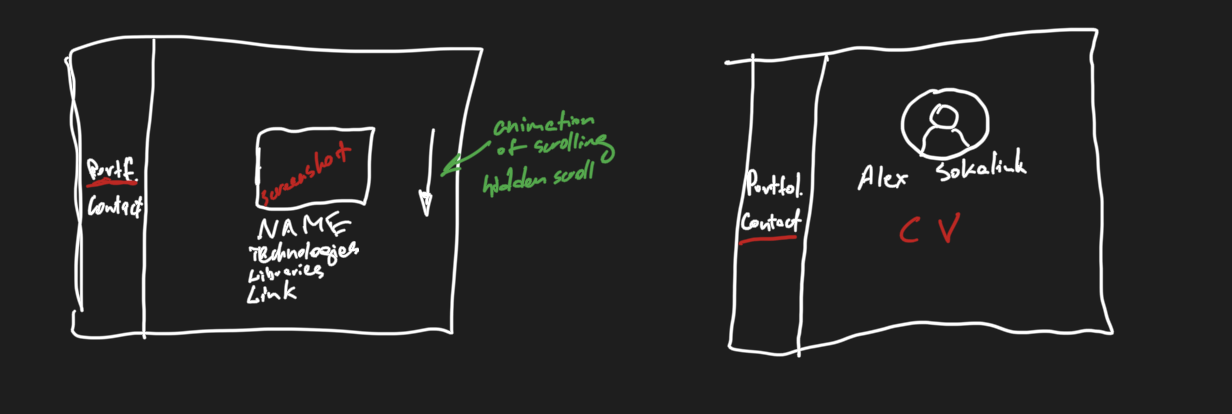 Portf.
Contact
screenshot
NAME
Technologies
Libraries
Link
animation
of scrolling
hidden scroll
Portfol.
Contact
Alex Sokalink
CV